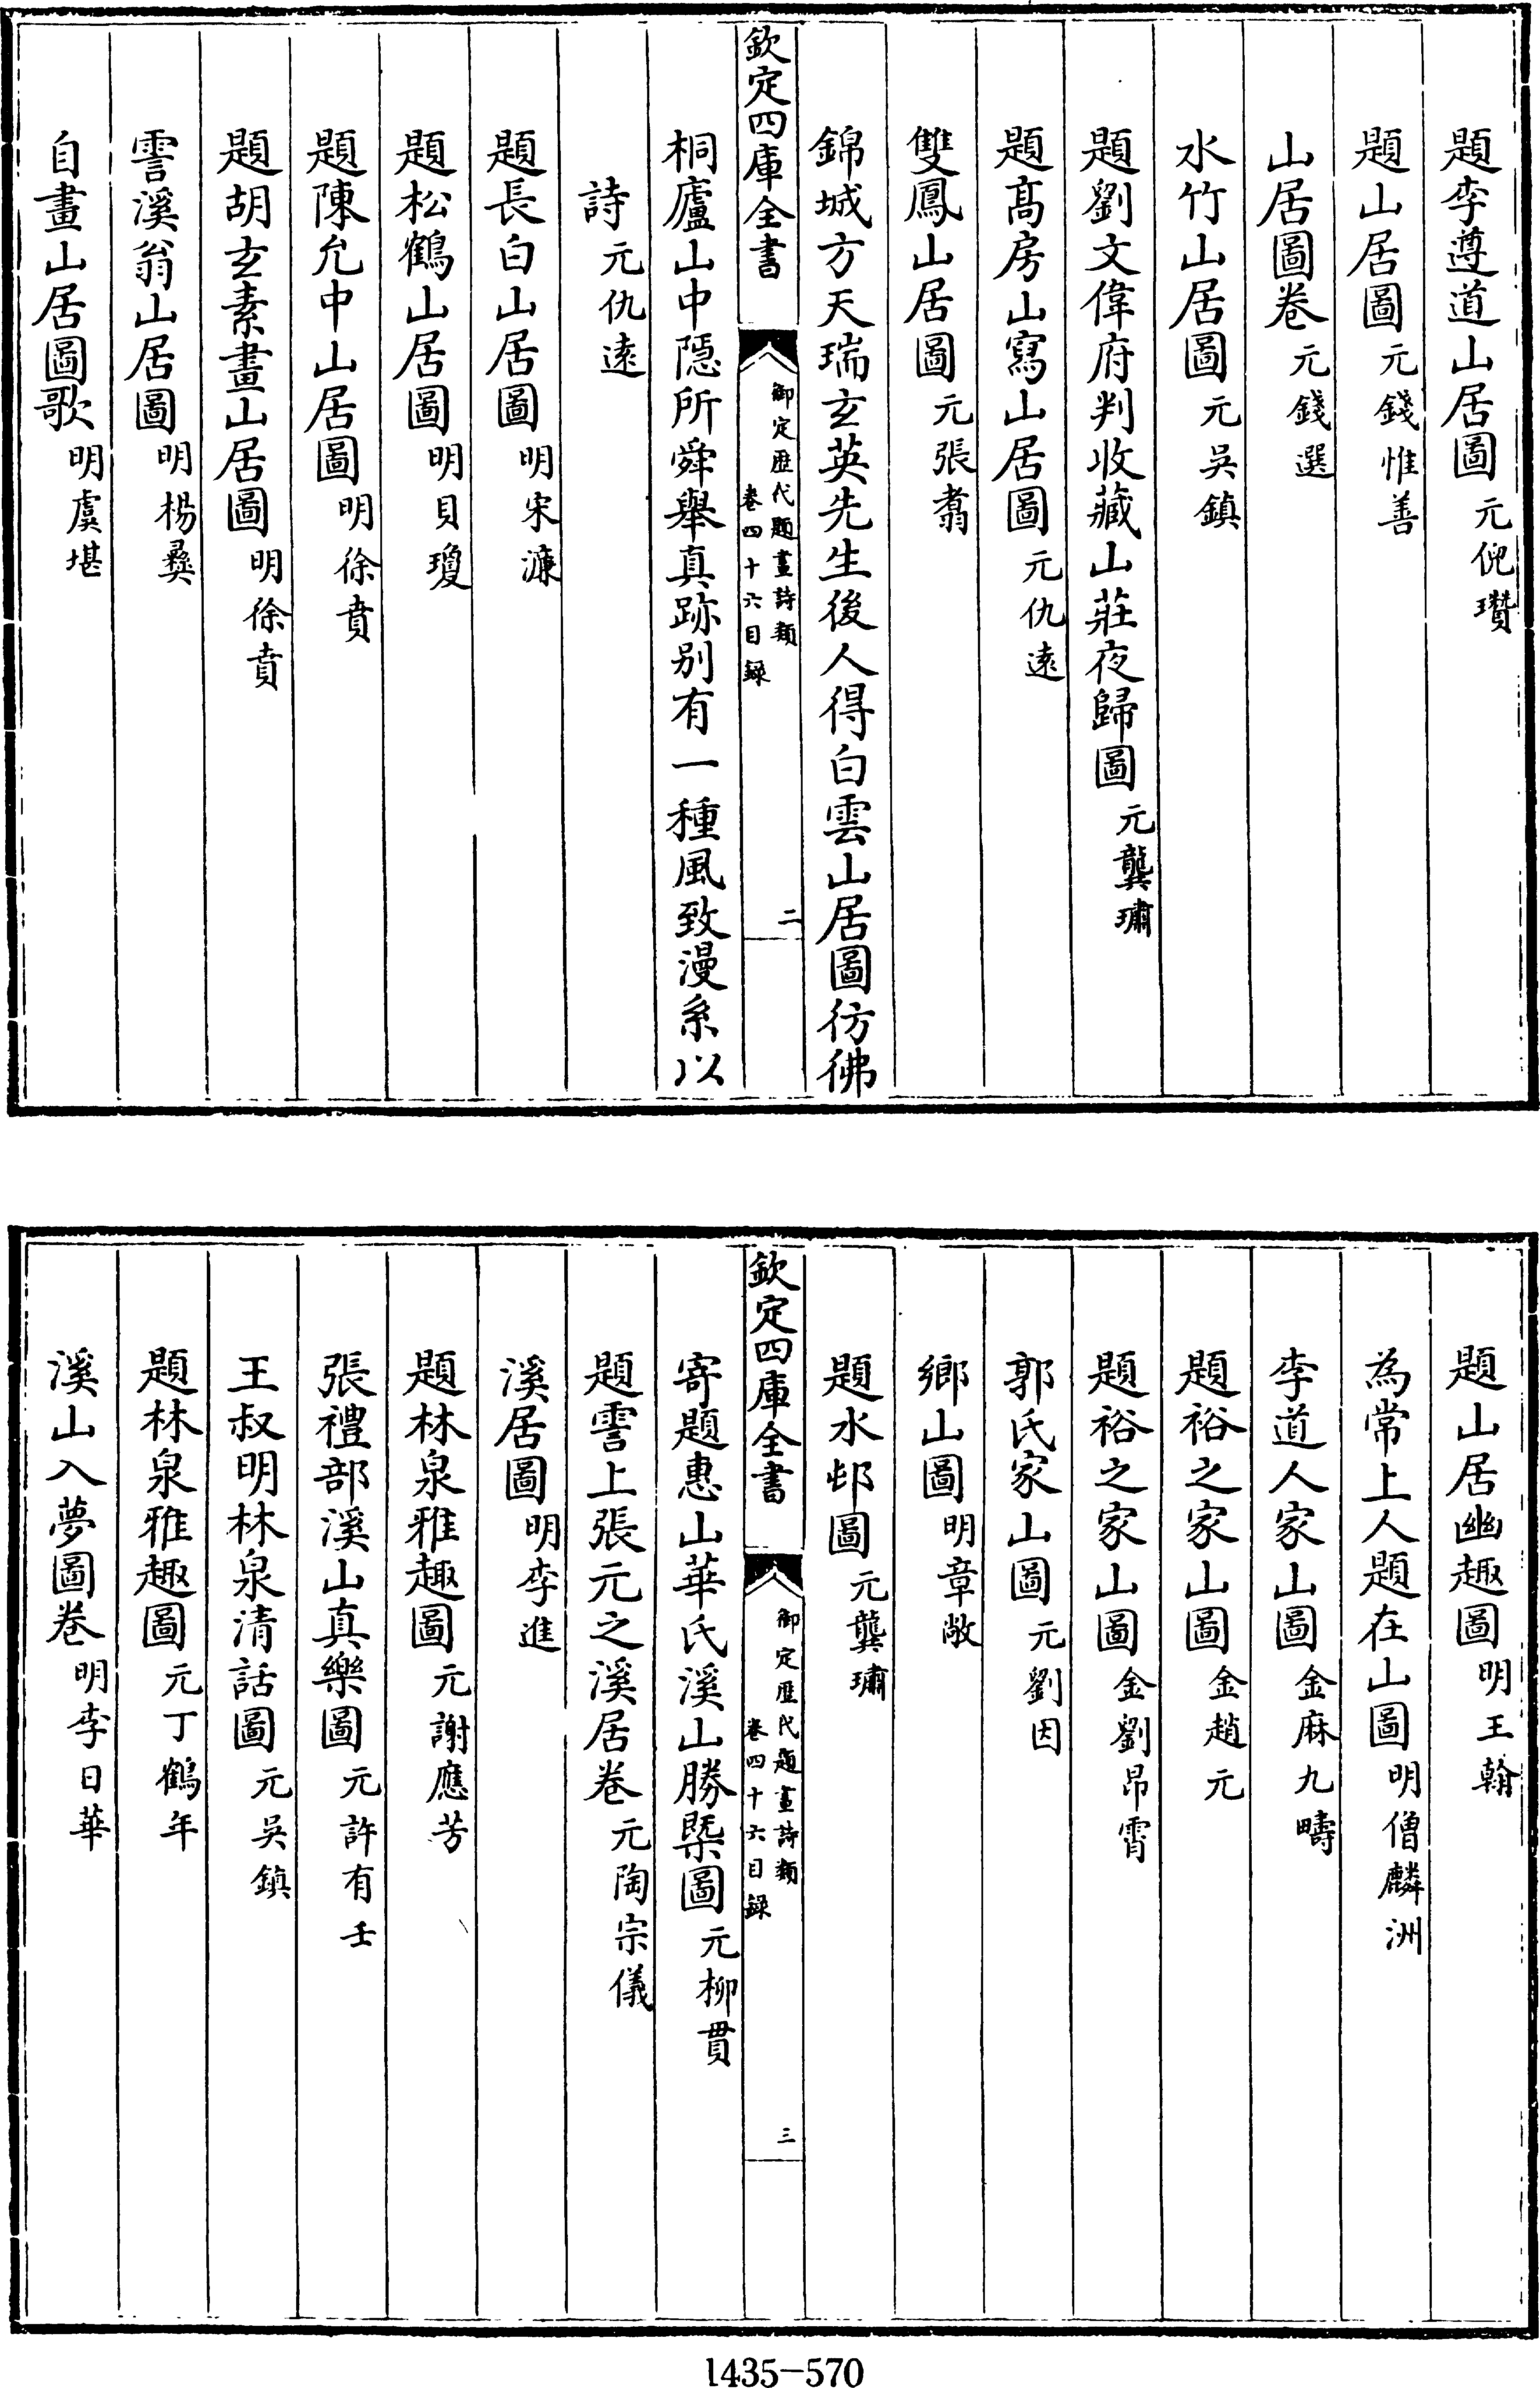 題李遵道山居圖元倪瓚
題山居圖元錢惟善
山居圖卷元錢選
水竹山居圖元吳鎮
題劉文偉府判收藏山莊夜歸圖元龔璛
題高房山寫山居圖元仇遠
雙鳳山居圖元張翥
錦城方天瑞玄英先生後人得白雲山居圖彷彿
欽定四庫全書
御定歷代題畫詩類
卷四十六目錄
二
桐廬山中隱所舜舉真跡别有一種風致漫系以
詩元仇遠
題長白山居圖明宋濂
題松鶴山居圖明貝瓊
題陳允中山居圖明徐賁
題胡玄素畫山居圖明徐賁
霅溪翁山居圖明楊彝
自畫山居圖歌明虞堪
題山居幽趣圖明王翰
為常上人題在山圖明僧麟洲
李道人家山圖金麻九疇
題裕之家山圖金趙元
題裕之家山圖金劉昂霄
郭氏家山圖元劉因
鄉山圖明章敞
題水邨圖元龔璛
欽定四庫全書
御定歷代題畫詩類
卷四十六目錄
三
寄題惠山華氏溪山勝槩圖元柳貫
題霅上張元之溪居卷元陶宗儀
溪居圖明李進
題林泉雅趣圖元謝應芳
張禮部溪山真樂圖元許有壬
王叔明林泉清話圖元吳鎮
題林泉雅趣圖元丁鶴年
溪山入夢圖卷明李日華
1435-570